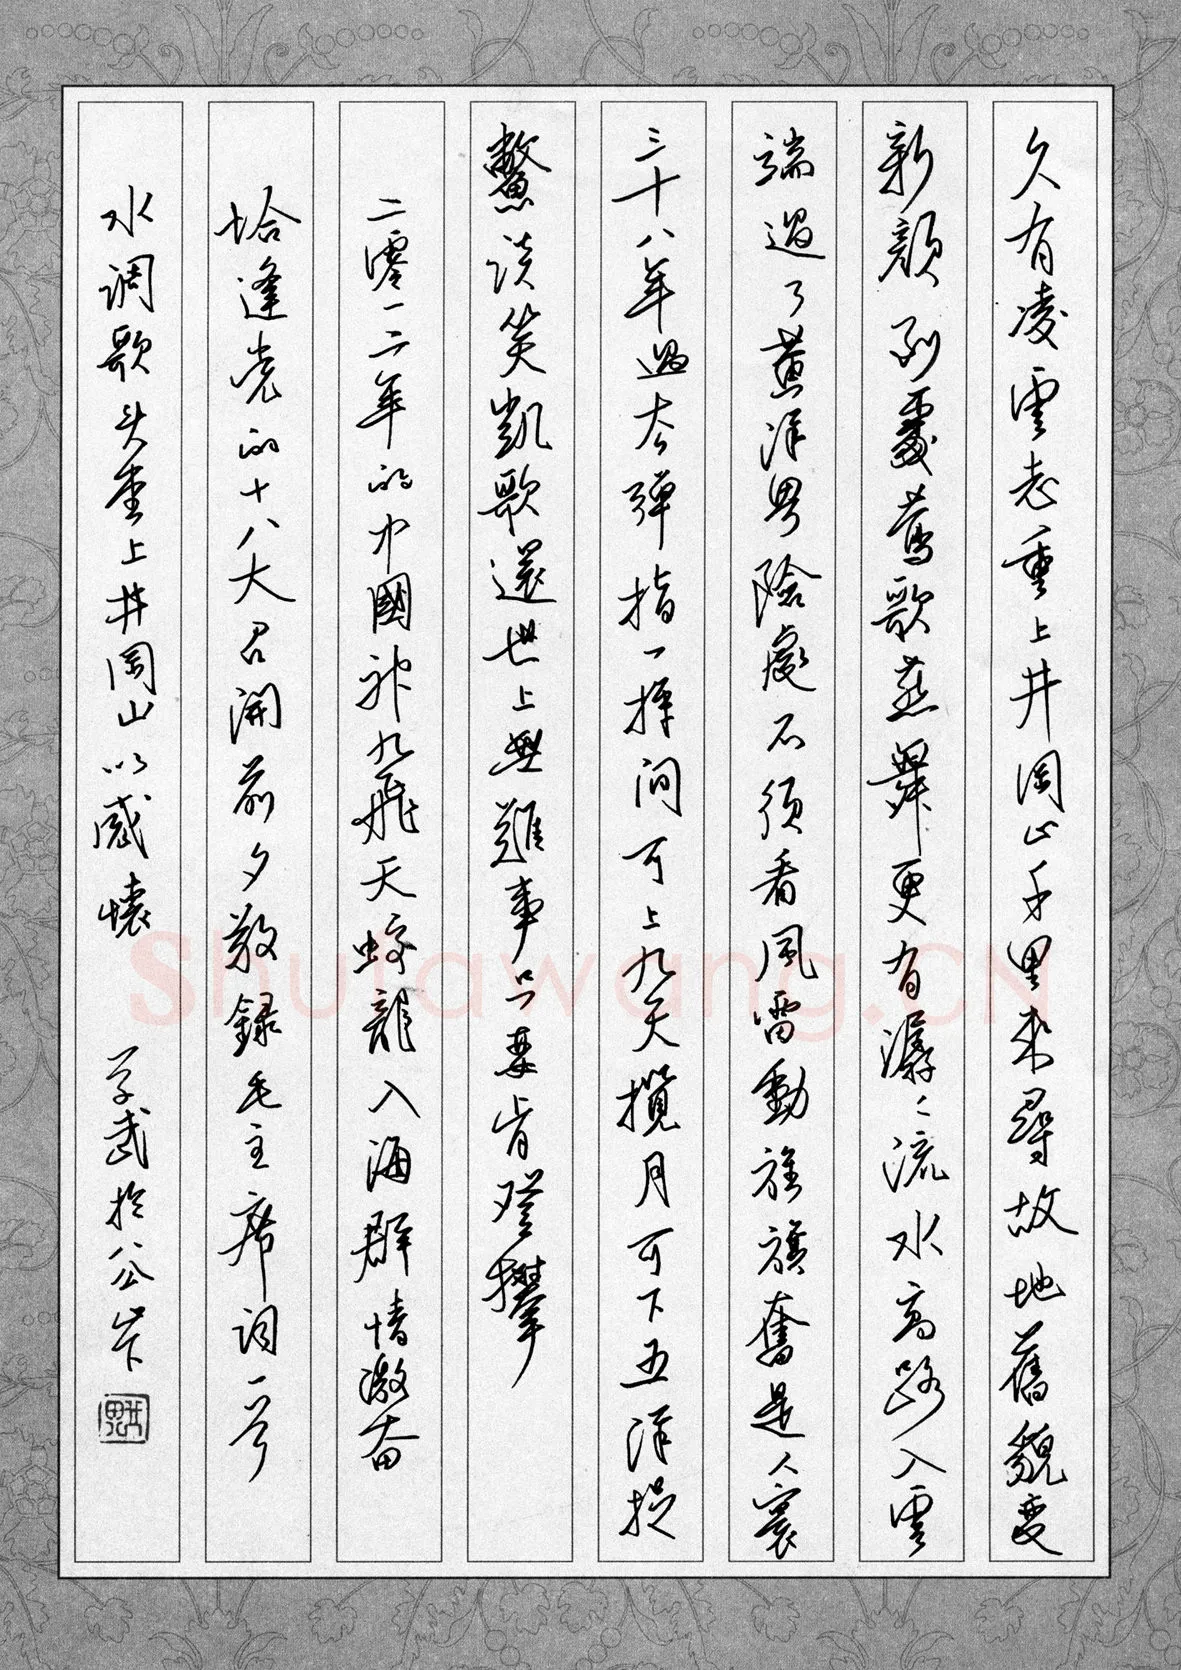 久有凌雲志重上井岡山千里来尋故地舊貌变
新颜到處莺歌燕舞更有潺々流水高路入雲
端過了黄洋界險處不须看風雷動旌旗奮是人寰
三十八年過去弹指一挥间可上九天揽月可下五洋捉
鳖谈笑凯歌還世上無難事只要肯登攀
二零一二年的中國神九飛天蛟龍入海群情激奋
恰逢党的十八大召開前夕敬録毛主席词一首
水调歌头重上井岡山以感懷 学武於公安下
Shufawang.CN